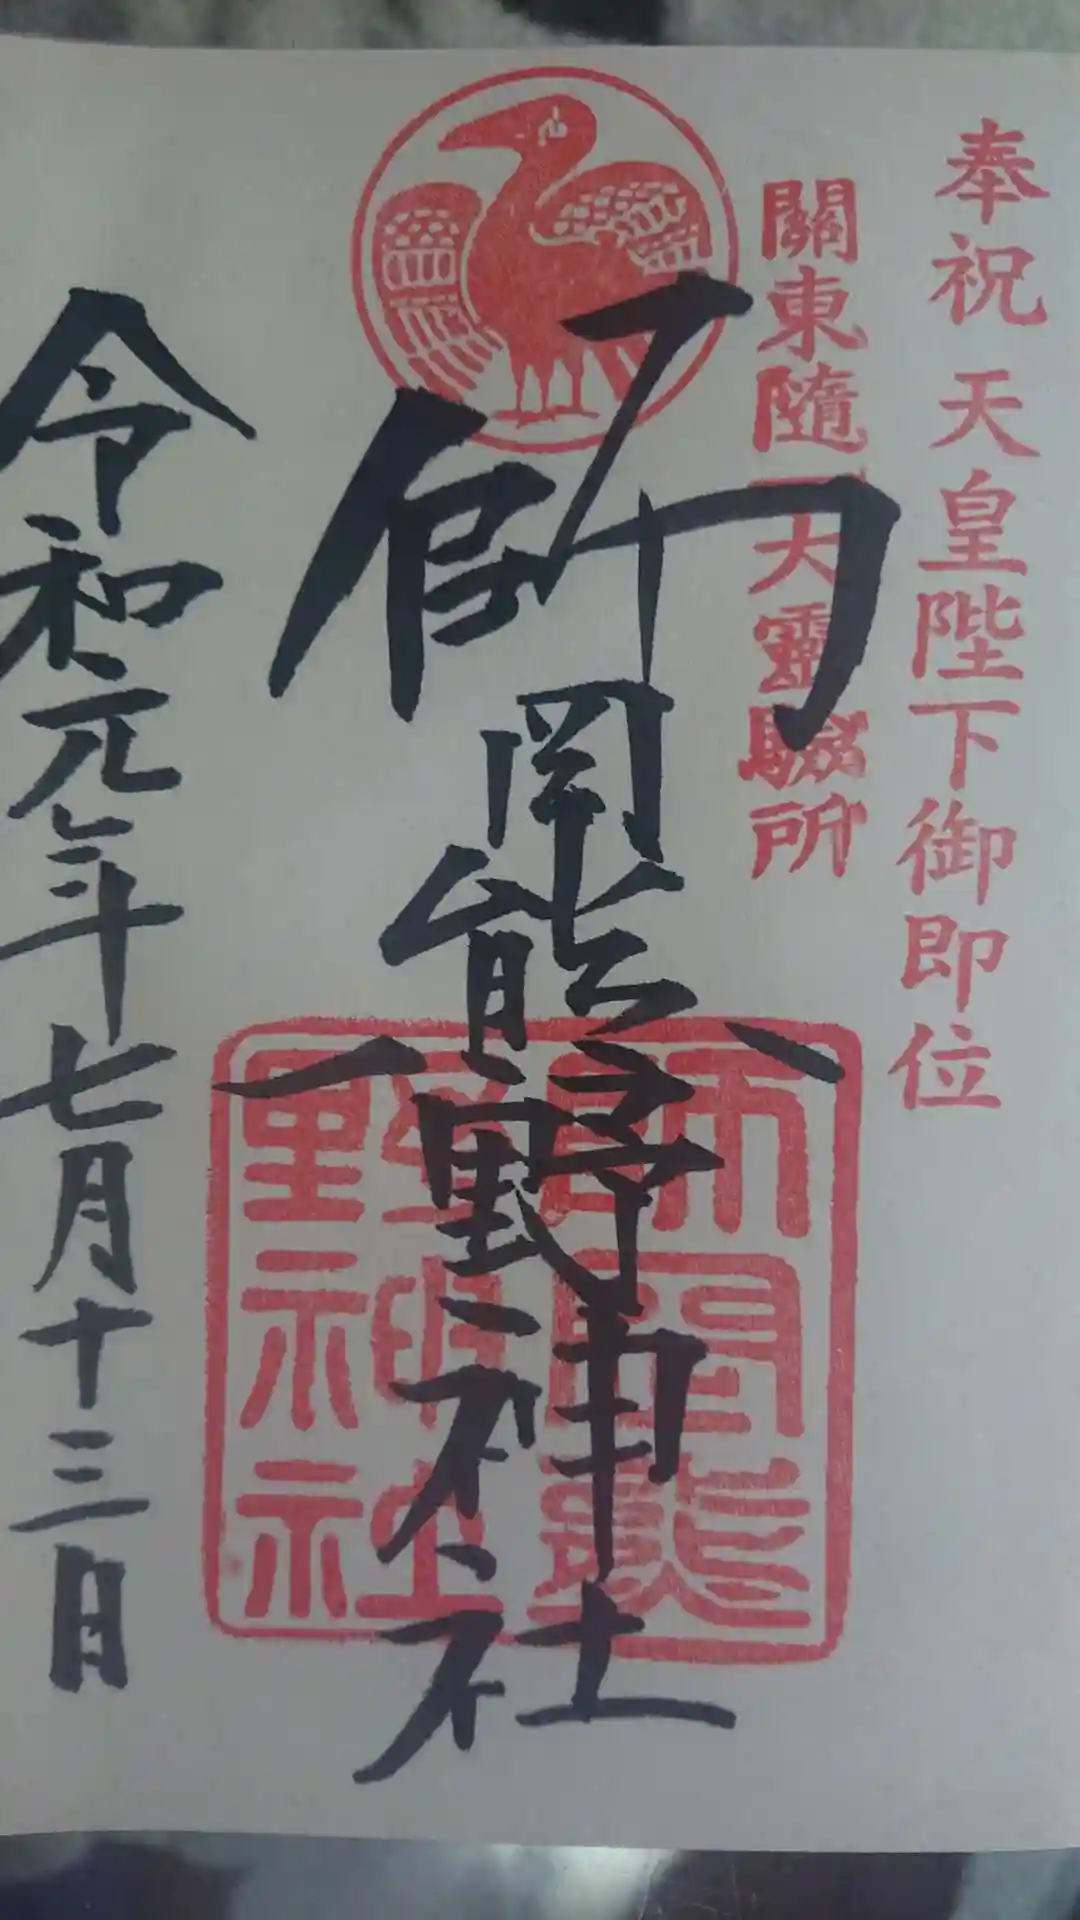 奉祝 天皇陛下御即位
關東随一大靈驗所
師岡熊野神社
師岡熊野神社
令和元年七月十三日